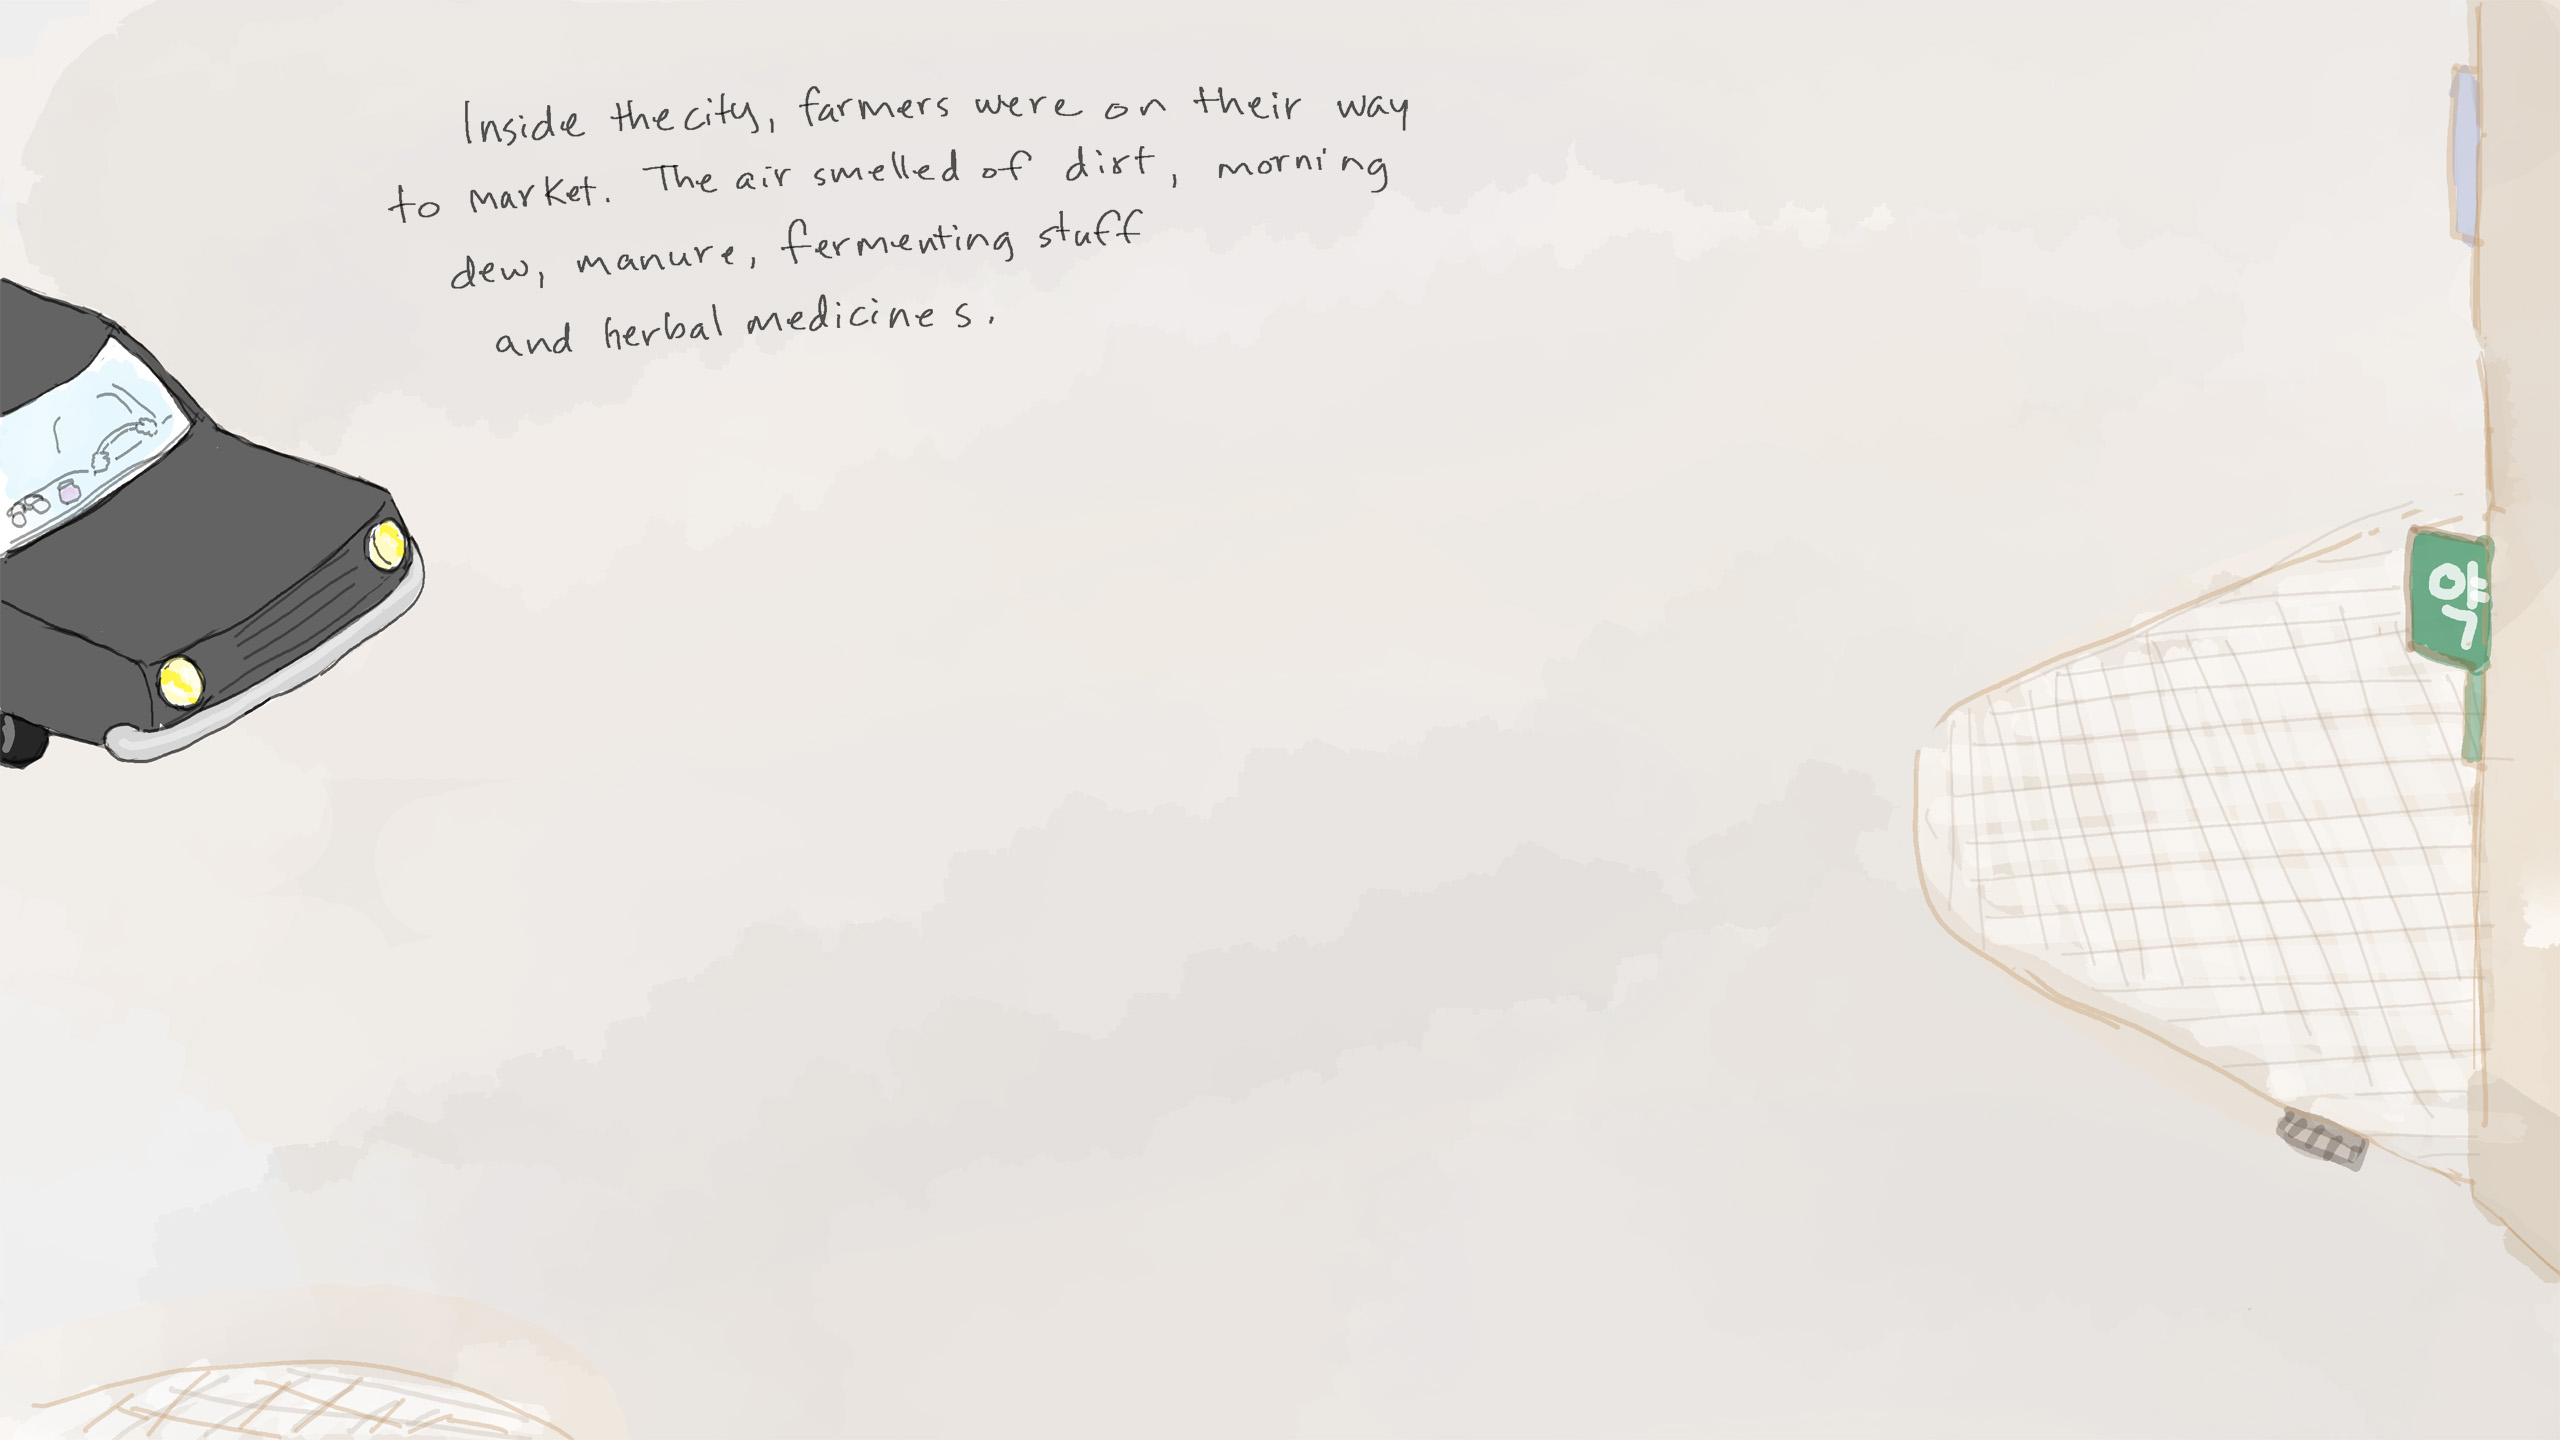 Inside the city, farmers were on their way
to market. The air smelled of dirt, morning
dew, manure, fermenting stuff
and herbal medicines.
약